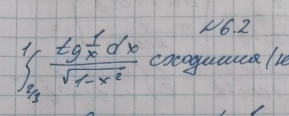 №6.2
∫_{2/3}^{1} tg 1/x dx / √(1-x²) сходимися (